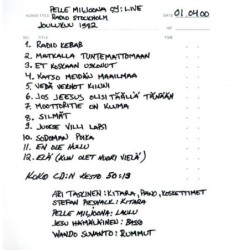 PELLE MILJOONA OY: LIVE
RADIO STOCKHOLM
JOULUKUU 1992
DATE 01.04.00
1. RADIO KEBAB
2. MATKALLA TUNTEMATTOMAAN
3. ET KOSKAAN USKONUT
4. KATSO MEIDÄN MAAILMAA
5. VEDÄ VERHOT KIINNI
6. JOS JEESUS OLISI TÄÄLLÄ TÄNÄÄN
7. MOOTTORITIE ON KUUMA
8. SILMÄT
9. JUOKSE VILLI LAPSI
10. SODOMAN POIKA
11. EN OLE HULLU
12. ELÄ (KUN OLET NUORI VIELÄ)
KOKO CD:N KESTO 50:13
ARI TASKINEN: KITARA, PIANO, KOSKETTIMET
STEFAN PIESNACK: KITARA
PELLE MILJOONA: LAULU
JESU HÄMÄLÄINEN: BASSO
WANDO SUVANTO: RUMMUT